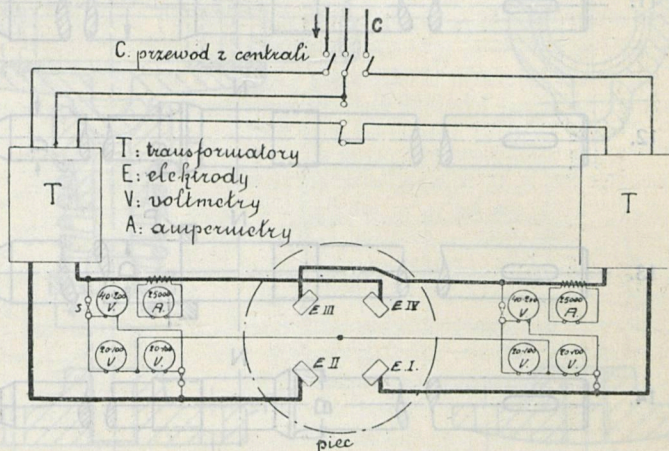 C
C. przewod z centrali
T: transformatory
E: elektrody
V: voltmetry
A: ampermetry
T
T
40-200 V.
25000 A.
S
20-100 V.
20-100 V.
E III
E IV
E II
E. I.
40-200 V.
25000 A.
20-100 V.
20-100 V.
piec